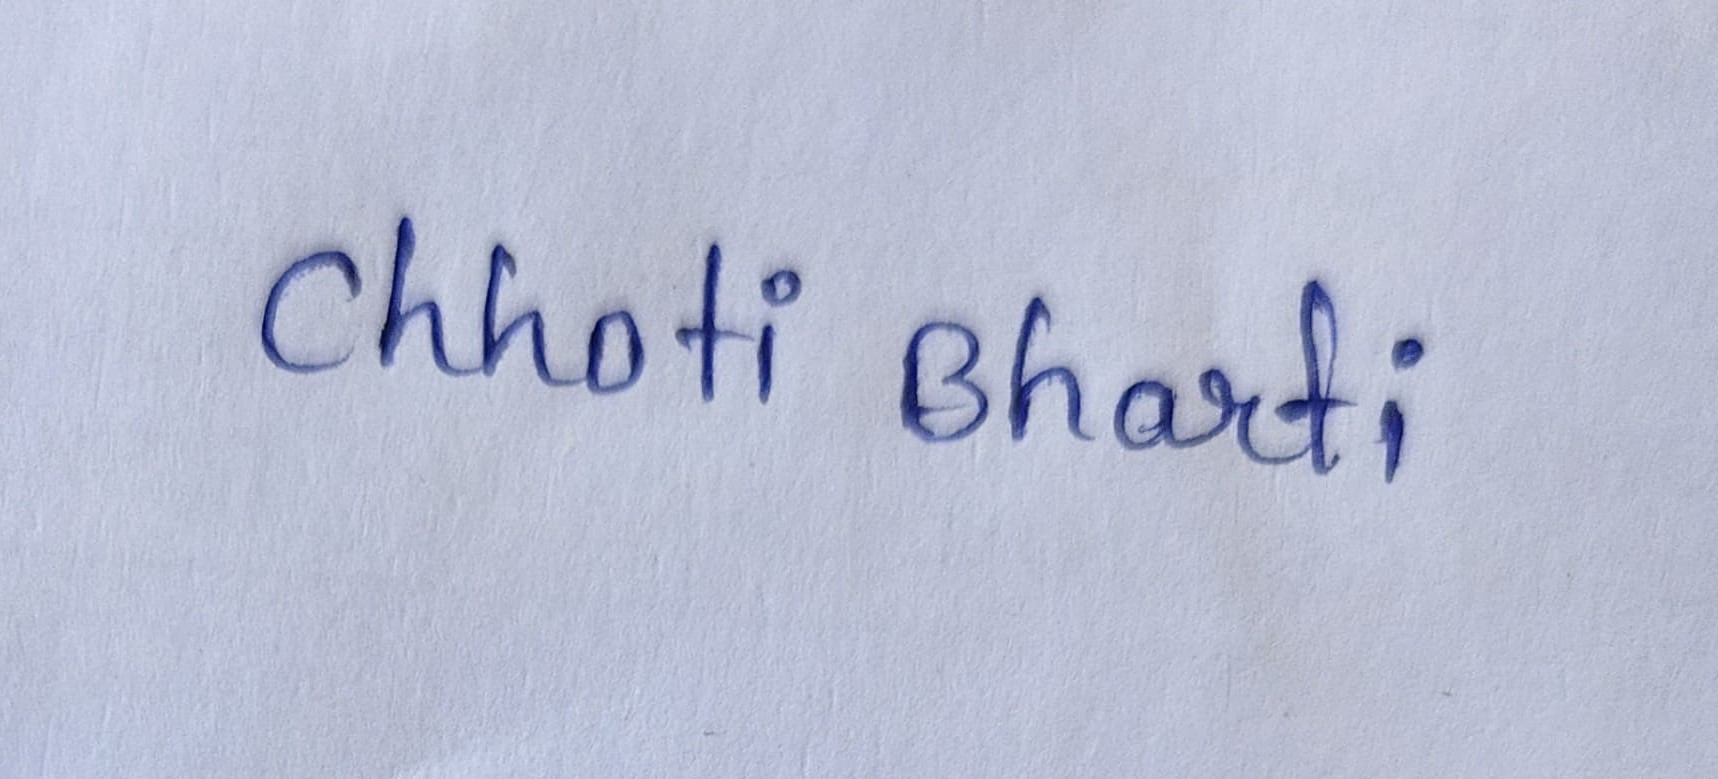 Chhoti Bharti